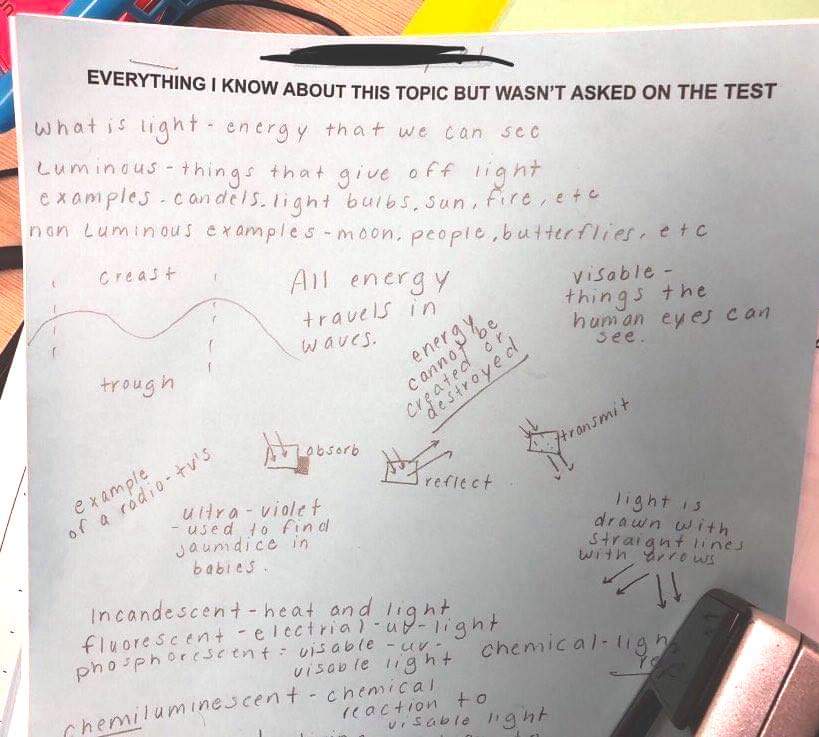 EVERYTHING I KNOW ABOUT THIS TOPIC BUT WASN'T ASKED ON THE TEST
what is light - energy that we can see
Luminous - things that give off light
examples - candels. light bulbs, sun, fire, etc
non Luminous examples - moon, people, butterflies, etc
creast
trough
All energy
travels in
waves.
energy
cannot be
created or
destroyed
visable -
things the
human eyes can
see.
example
of a radio-tv's
absorb
reflect
transmit
ultra-violet
- used to find
jaumdice in
babies.
light is
drawn with
straight lines
with arrows
Incandescent - heat and light
fluorescent - electrial - uv - light
phosphorescent = visable - uv -
visable light
chemical - ligh
chemiluminescent - chemical
reaction to
visable light